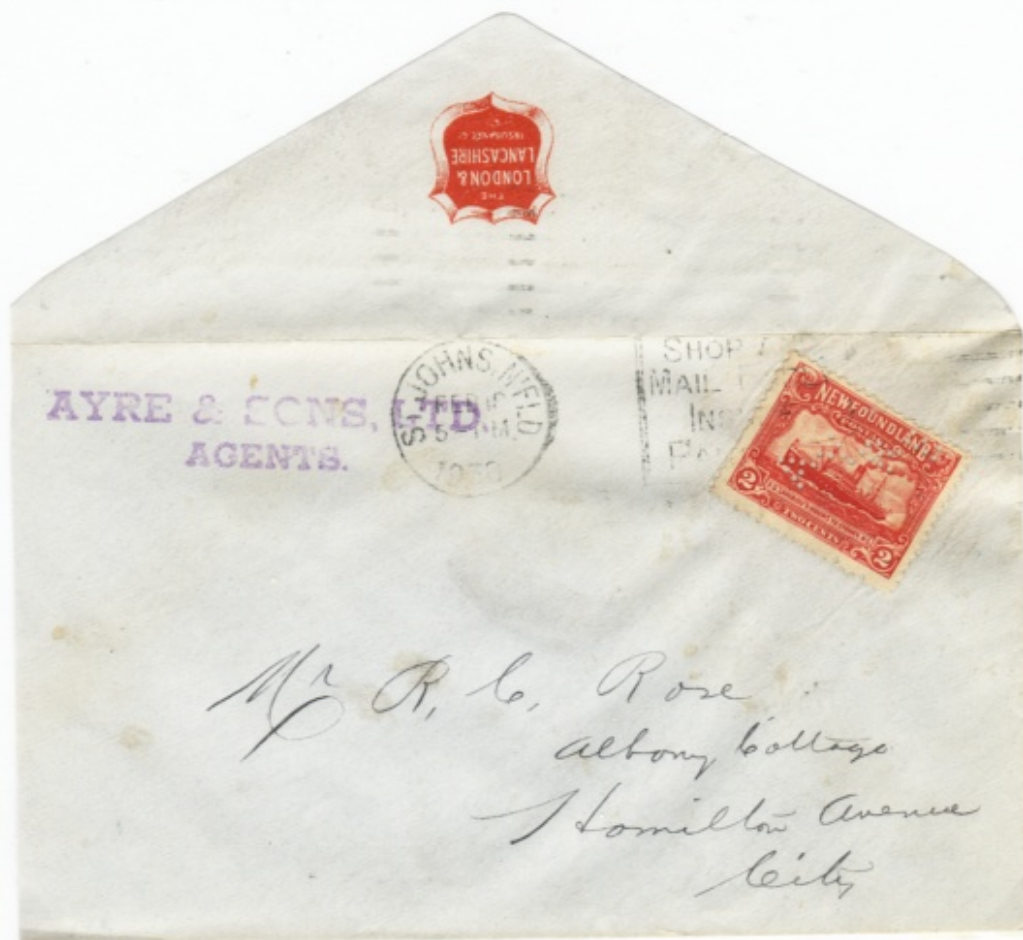 THE
LONDON &
LANCASHIRE
INSURANCE Co
AYRE & SONS, LTD.
AGENTS.
ST. JOHNS, N'FLD
SHOP
MAIL
NEWFOUNDLAND
POSTAGE
2 2
TWO CENTS
Mr R. C. Rose
Albany Cottage
Hamilton Avenue
City